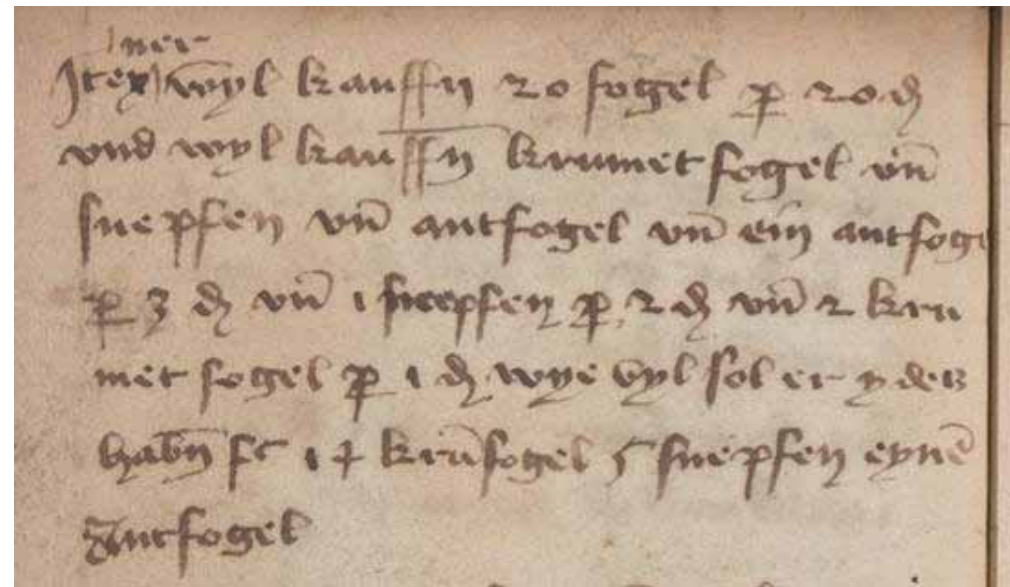 ner
Item wyl kauffn 20 fogel p 20 ₰
vnd wyl kauffn krumet fogel vn̄
snepfen vn̄ antfogel vn̄ ein antfoge
p 3 ₰ vn̄ 1 snepfen p 2 ₰ vn̄ 2 kru
met fogel p 1 ₰ wye vyl sol er yder
habn̄ fc 14 krūfogel 5 snepfen eynē
Antfogel